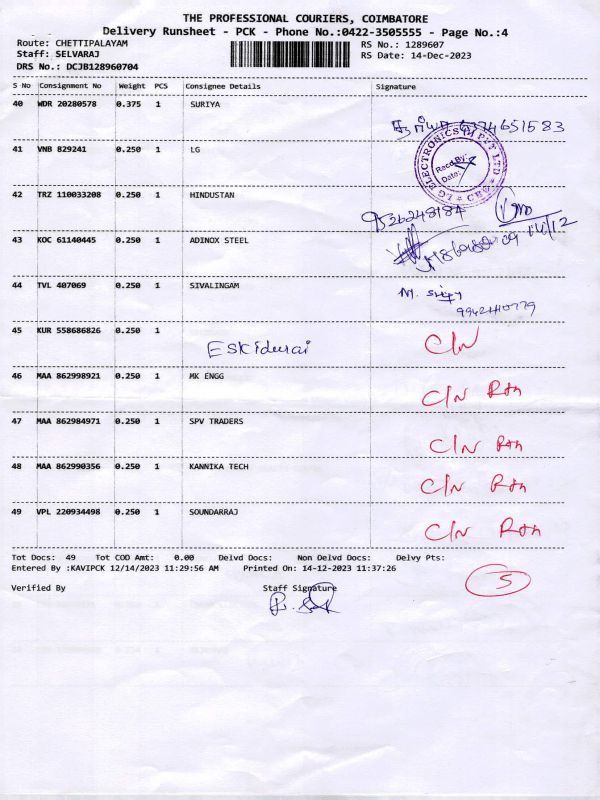 THE PROFESSIONAL COURIERS, COIMBATORE
Delivery Runsheet - PCK - Phone No.:0422-3505555 - Page No.:4
Route: CHETTIPALAYAM RS No.: 1289607
Staff: SELVARAJ RS Date: 14-Dec-2023
DRS No.: DCJB128960704
S No Consignment No Weight PCS Consignee Details Signature
40 WDR 20280578 0.375 1 SURIYA
41 VNB 829241 0.250 1 LG
LG ELECTRONICS PVT LTD
Recd By:
Date:
42 TRZ 110033208 0.250 1 HINDUSTAN
43 KOC 61140445 0.250 1 ADINOX STEEL
14/12
44 TVL 407069 0.250 1 SIVALINGAM
45 KUR 558686826 0.250 1 C/N
46 MAA 862998921 0.250 1 MK ENGG C/N
47 MAA 862984971 0.250 1 SPV TRADERS C/N
48 MAA 862990356 0.250 1 KANNIKA TECH C/N
49 VPL 220934498 0.250 1 SOUNDARRAJ C/N
Tot Docs: 49 Tot COD Amt: 0.00 Delvd Docs: Non Delvd Docs: Delvy Pts:
Entered By :KAVIPCK 12/14/2023 11:29:56 AM Printed On: 14-12-2023 11:37:26
5
Verified By Staff Signature